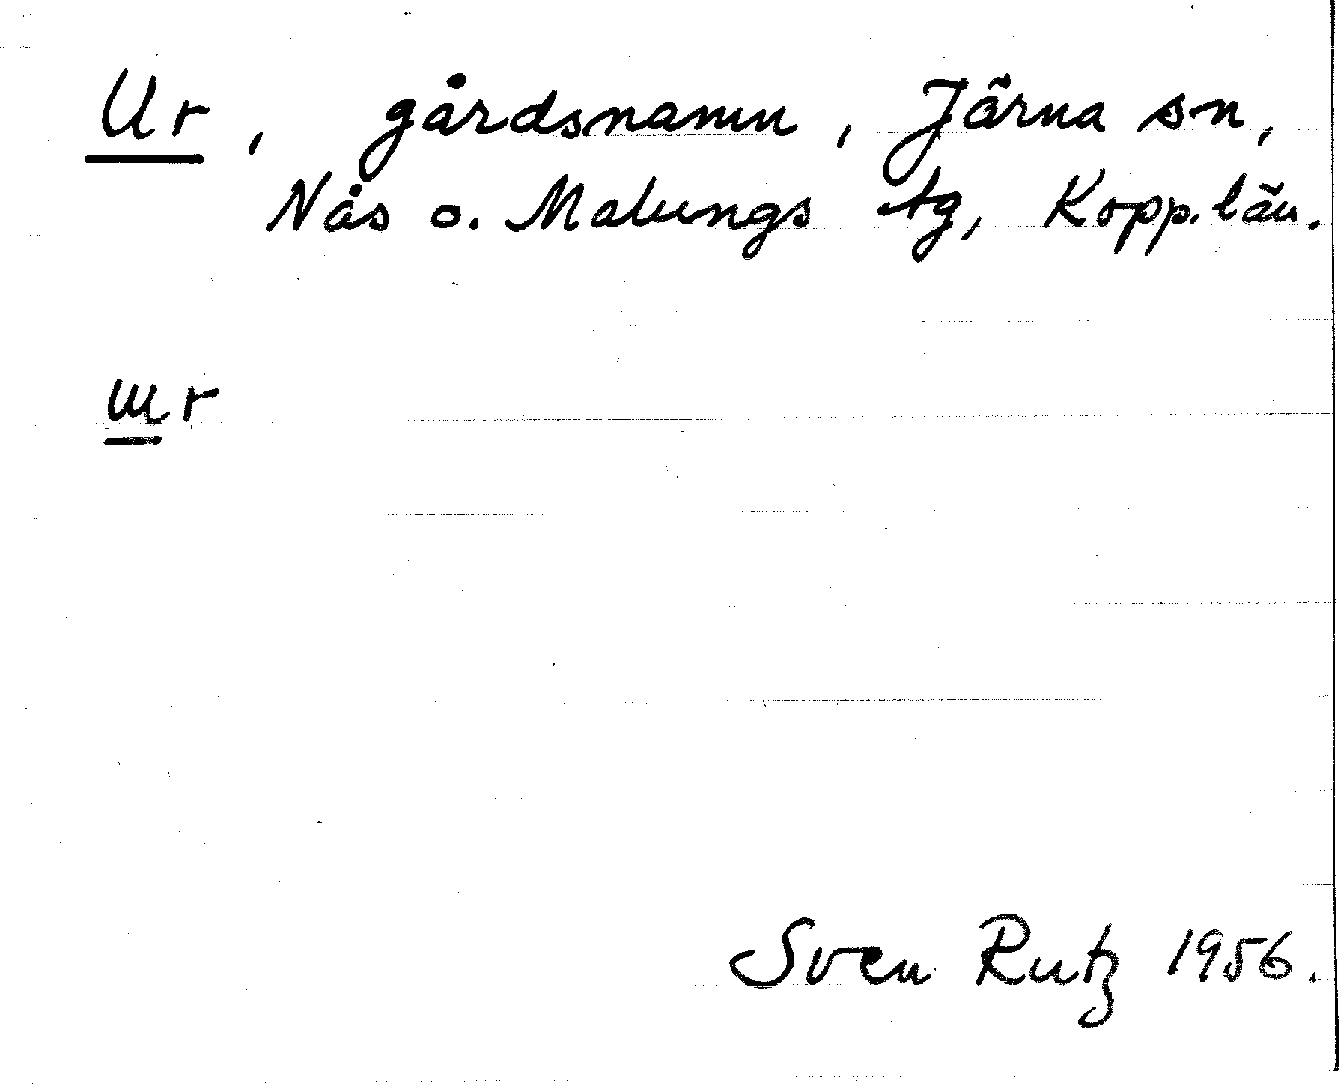 Ur, gårdsnamn, Järna sn,
Nås o. Malungs tg, Kopp. län.
ɯr
Sven Rutz 1956.